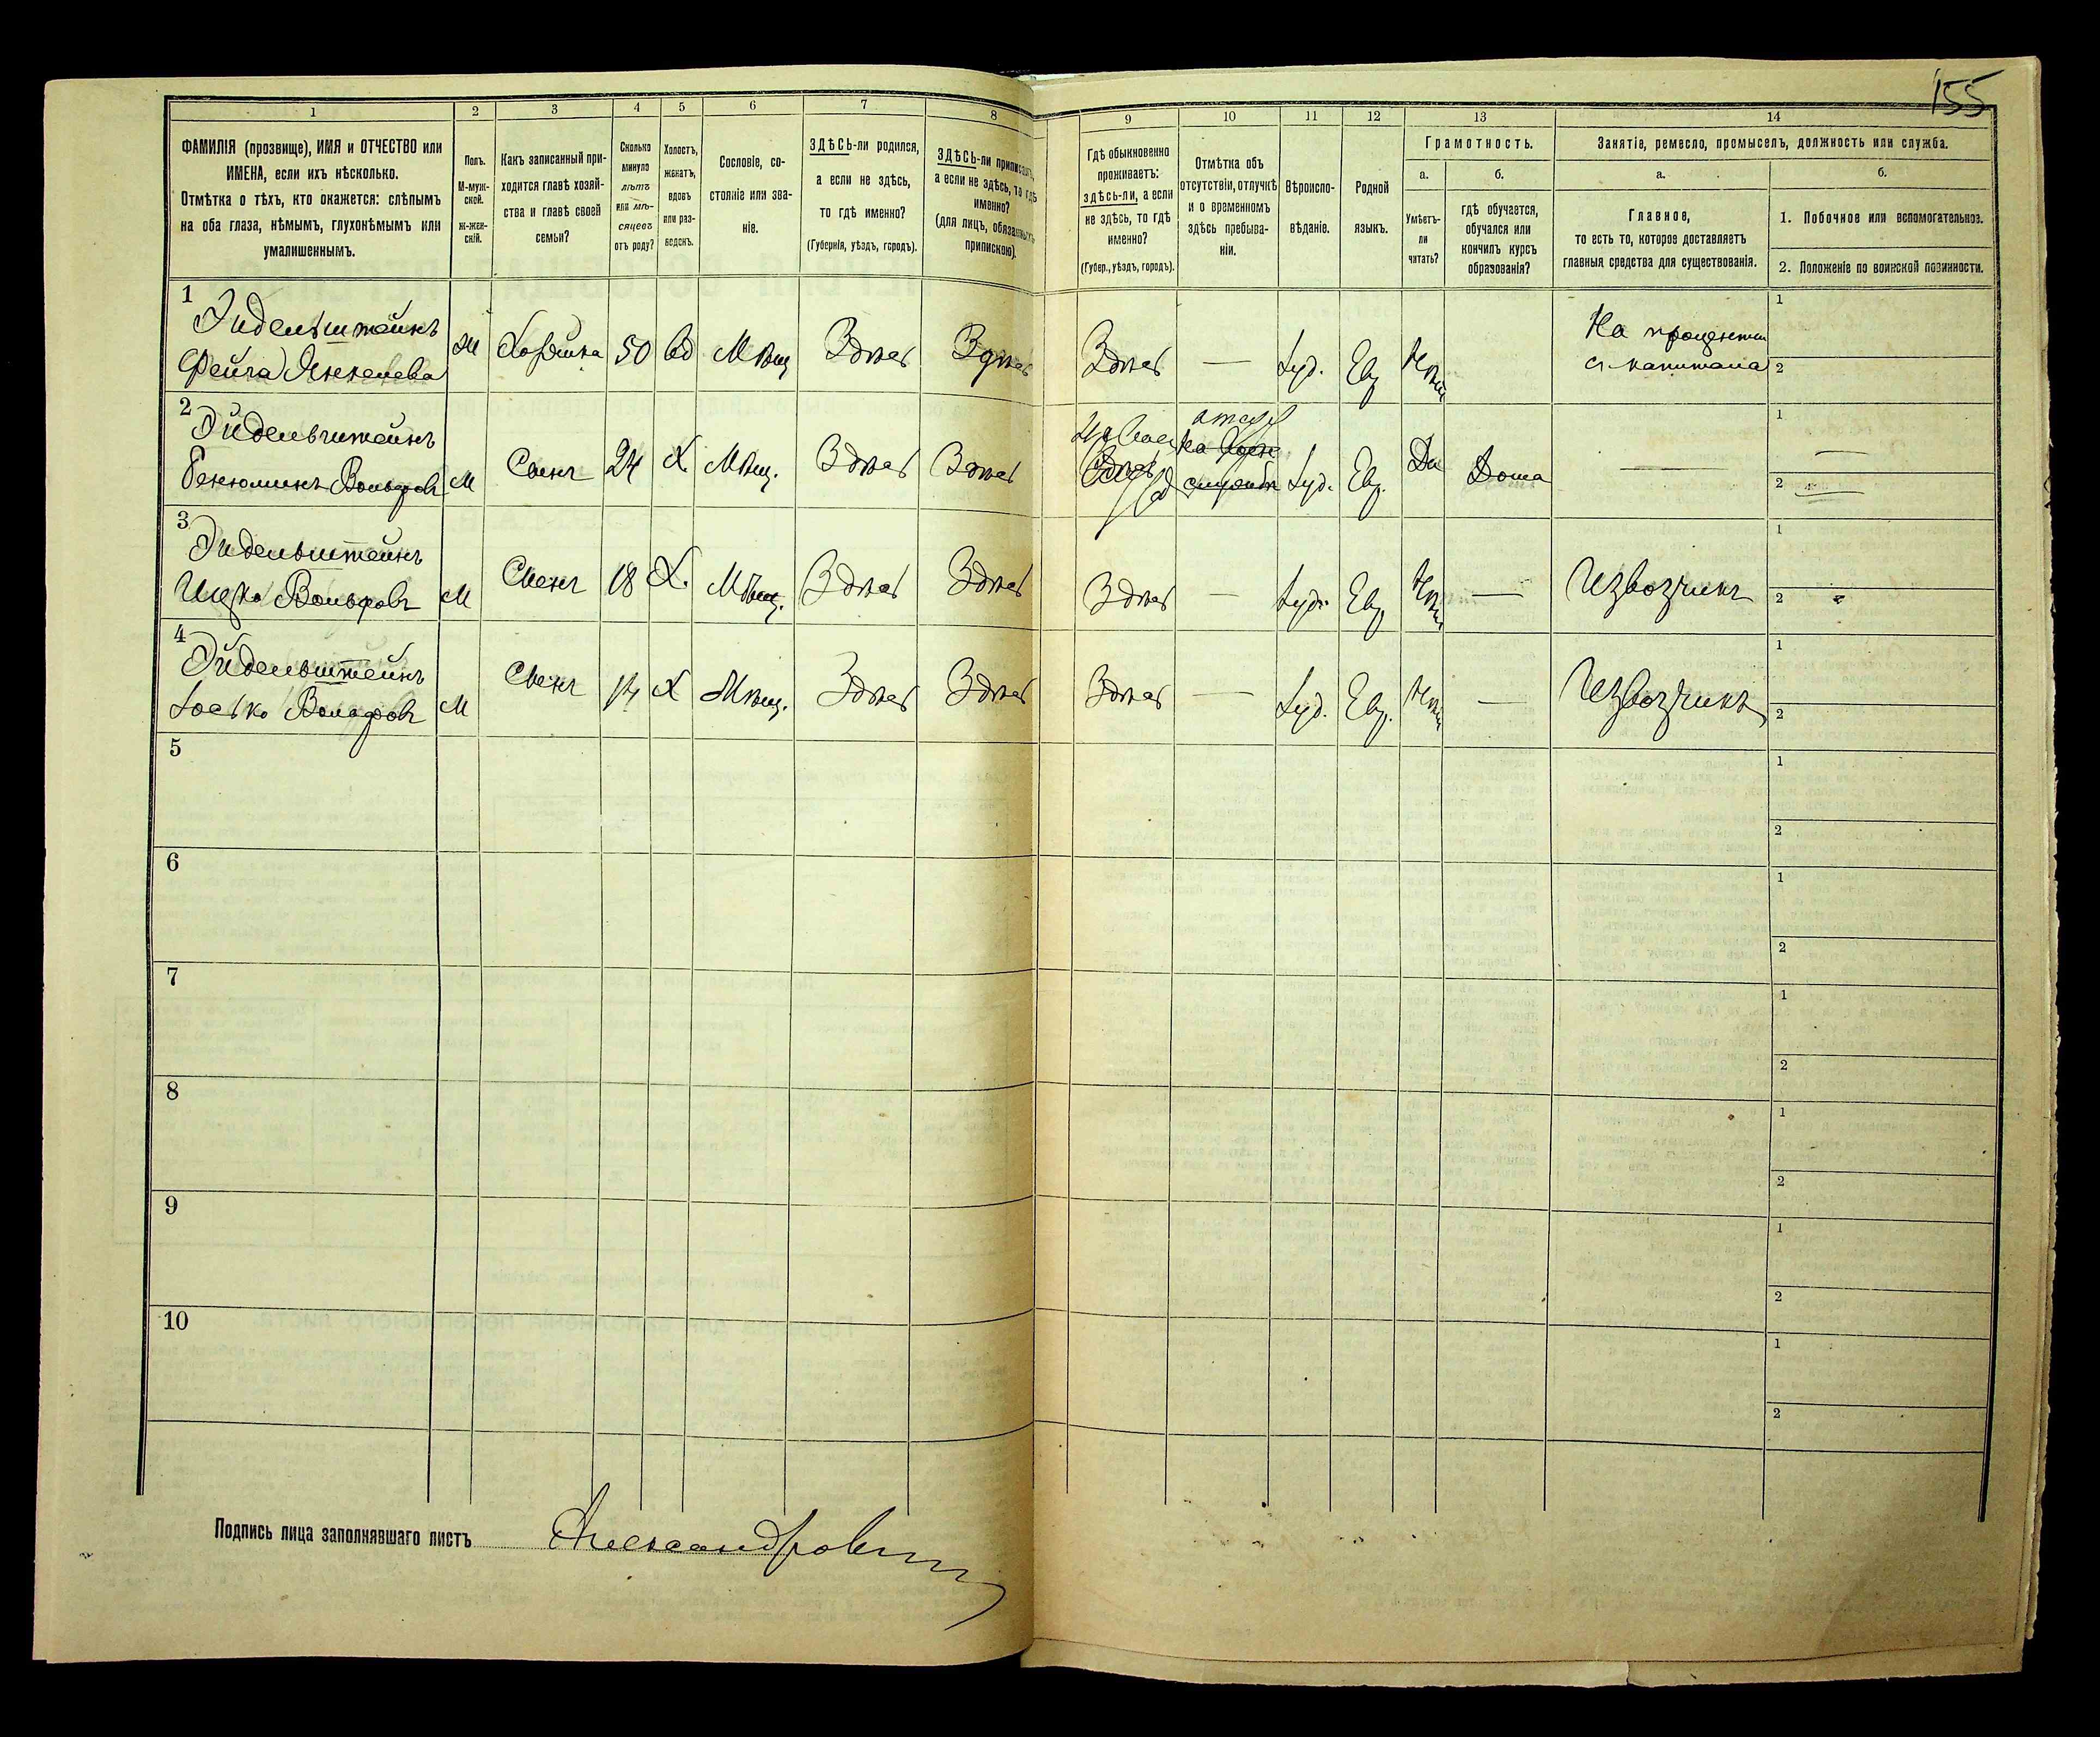 155
1 2 3 4 5 6 7 8 9 10 11 12 13 14
ФАМИЛІЯ (прозвище), ИМЯ и ОТЧЕСТВО или
ИМЕНА, если ихъ нѣсколько.
Отмѣтка о тѣхъ, кто окажется: слѣпымъ
на оба глаза, нѣмымъ, глухонѣмымъ или
умалишеннымъ.
Полъ.
М-муж-
ской.
Ж-жен-
скій.
Какъ записанный при-
ходится главѣ хозяй-
ства и главѣ своей
семьи?
Сколько
минуло
лѣтъ
или мѣ-
сяцевъ
отъ роду?
Холостъ,
женатъ,
вдовъ
или раз-
веденъ.
Сословіе, со-
стояніе или зва-
ніе.
ЗДѢСЬ-ли родился,
а если не здѣсь,
то гдѣ именно?
(Губернія, уѣздъ, городъ).
ЗДѢСЬ-ли приписанъ,
а если не здѣсь, то гдѣ
именно?
(для лицъ, обязанныхъ
припискою).
Гдѣ обыкновенно
проживаетъ:
здѣсь-ли, а если
не здѣсь, то гдѣ
именно?
(Губер., уѣздъ, городъ).
Отмѣтка объ
отсутствіи, отлучкѣ
и о временномъ
здѣсь пребыва-
ніи.
Вѣроиспо-
вѣданіе.
Родной
языкъ.
Грамотность.
а.
Умѣетъ-
ли
читать?
б.
гдѣ обучается,
обучался или
кончилъ курсъ
образованія?
Занятіе, ремесло, промыселъ, должность или служба.
а.
Главное,
то есть то, которое доставляетъ
главныя средства для существованія.
б.
1. Побочное или вспомогательное.
2. Положеніе по воинской повинности.
1
Эидельштейнъ
Фейга Янкелева
Ж Хозяйка 50 вд Мѣщ Здѣсь Здѣсь Здѣсь — Іуд. Евр Нѣт
На проценты
съ капитала
1
2
2
Эйдельштейнъ
Бенюминъ Вольфовъ
М Сынъ 24 Х. Мѣщ. Здѣсь Здѣсь Здѣсь Іуд. Евр. Да Дома —
1 —
2 —
3
Эидельштейнъ
Ицко Вольфовъ
М Сынъ 18 Х. Мѣщ. Здѣсь Здѣсь Здѣсь — Іуд. Евр. Нѣт — Извозчикъ
1
2
4
Эйдельштейнъ
Іосько Вольфовъ
М Сынъ 14 Х Мѣщ. Здѣсь Здѣсь Здѣсь — Іуд. Евр. Нѣт — Извозчикъ
1
2
5
1
2
6
1
2
7
1
2
8
1
2
9
1
2
10
1
2
Подпись лица заполнявшаго листъ Александрович